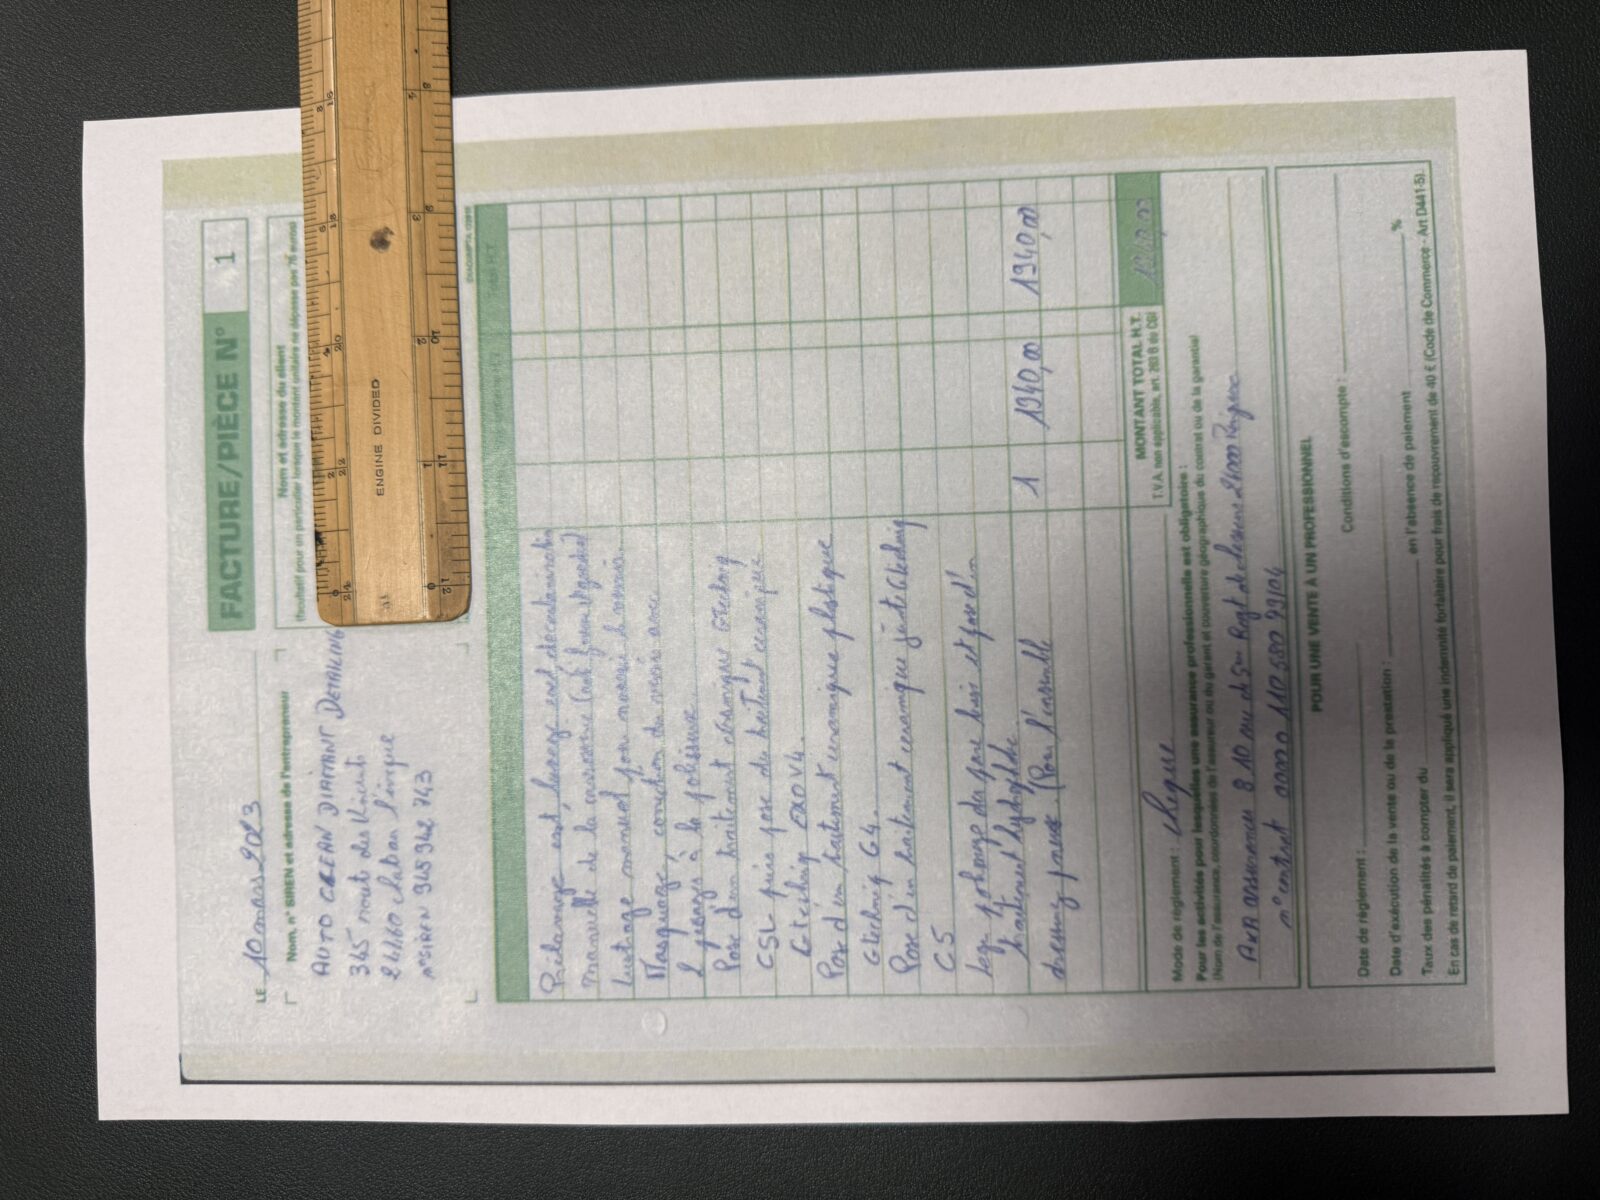 FACTURE/PIÈCE N° 1
LE 10 mars 2023
Nom, n° SIREN et adresse de l'entrepreneur
AUTO CLEAN DIAMANT DETAILING
345 route des
24460 chateau l'évêque
n° SIREN 948 942 743
Nom et adresse du client
(facultatif pour un particulier lorsque le montant unitaire ne dépasse pas 76 euros)
ENGINE DIVIDED
Prélavage, lavage et décontamination
manuelle de la carrosserie
Lustrage manuel
Masquage, correction du vernis avec
2 passages à la polisseuse
Pose d'un traitement céramique Gtechniq
CSL puis pose du traitement céramique
Gtechniq EXO V4.
Pose d'un traitement céramique plastique
Gtechniq C4.
Pose d'un traitement céramique jante Gtechniq
C5
Leger polissage des pare brise et pose d'un
traitement hydrophobe.
dressing pneus. (Pour l'ensemble 1 1940,00 1940,00
MONTANT TOTAL H.T. 1940,00
T.V.A. non applicable, art. 293 B du CGI
Mode de règlement : chèque
Pour les activités pour lesquelles une assurance professionnelle est obligatoire :
(Nom de l'assurance, coordonnées de l'assureur ou du garant et couverture géographique du contrat ou de la garantie)
AXA assurances 8 10 rue du 5me Regt de chasseurs 24000 Périgueux
n° contrat 0000 110 580 99104
POUR UNE VENTE À UN PROFESSIONNEL
Date de règlement : Conditions d'escompte :
Date d'exécution de la vente ou de la prestation :
Taux des pénalités à compter du en l'absence de paiement %
En cas de retard de paiement, il sera appliqué une indemnité forfaitaire pour frais de recouvrement de 40 € (Code de Commerce - Art D441-5).